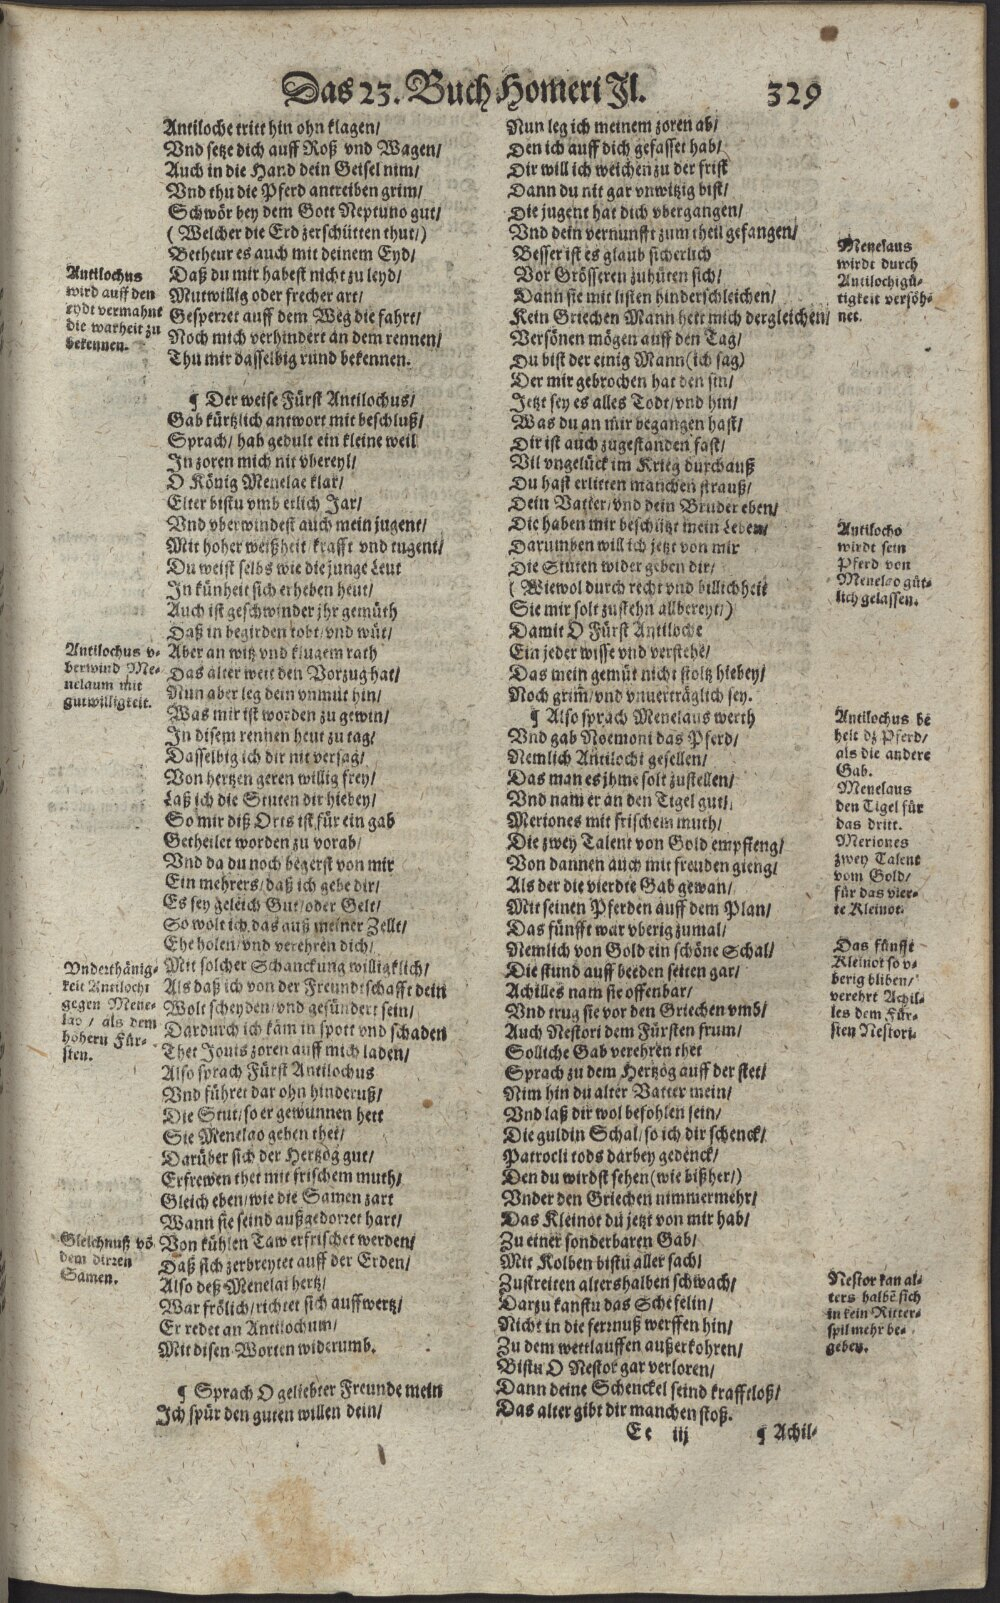 Das 23. Buch Homeri Jl. 329
Antiloche tritt hin ohn klagen/
Vnd setze dich auff Roß vnd Wagen/
Auch in die Hand dein Geisel nim/
Vnd thu die Pferd antreiben grim/
Schwör bey dem Gott Neptuno gut/
( Welcher die Erd zerschütten thut/)
Betheur es auch mit deinem Eyd/
Daß du mir habest nicht zu leyd/
Mutwillig oder frecher art/
Gesperret auff dem Weg die fahrt/
Noch mich verhindert an dem rennen/
Thu mir dasselbig rund bekennen.
Antilochus
wird auff den
eydt vermahnt
die warheit zu
bekennen.
¶ Der weise Fürst Antilochus/
Gab kürtzlich antwort mit beschluß/
Sprach/ hab gedult ein kleine weil
In zoren mich nit vbereyl/
O König Menelae klar/
Elter bistu vmb etlich Jar/
Vnd vberwindest auch mein jugent/
Mit hoher weißheit/ krafft vnd tugent/
Du weist selbs wie die junge Leut
In künheit sich erheben heut/
Auch ist geschwinder jhr gemüth
Daß in begirden tobt/ vnd wüt/
Aber an witz vnd klugem rath
Das alter weit den Vorzug hat/
Nun aber leg dein vnmüt hin/
Was mir ist worden zu gewin/
In disem rennen heut zu tag/
Dasselbig ich dir nit versag/
Von hertzen geren willig frey/
Laß ich die Stuten dir hiebey/
So mir diß Orts ist für ein gab
Getheilet worden zu vorab/
Vnd da du noch begerst von mir
Ein mehrers/ daß ich gebe dir/
Es sey geleich Gut/ oder Gelt/
So wolt ich das auß meiner Zellt/
Ehe holen/ vnd verehren dich/
Mit solcher Schanckung williglich/
Als daß ich von der Freundtschafft dein
Wolt scheyden/ vnd gesündert sein/
Dardurch ich käm in spott vnd schaden
Thet Jouis zoren auff mich laden/
Also sprach Fürst Antilochus
Vnd führet dar ohn hinderuß/
Die Stut/ so er gewunnen hett
Sie Menelao geben thet/
Darüber sich der Hertzog gut/
Erfrewen thet mit frischem muth/
Gleich eben/ wie die Samen zart
Wann sie seind außgedorret hart/
Von kühlen Taw erfrischet werden/
Daß sich zerbreytet auff der Erden/
Also deß Menelai hertz/
War frölich/ richtet sich auffwertz/
Er redet an Antilochum/
Mit disen Worten widerumb.
Antilochus v-
berwind Me-
nelaum mit
gutwilligkeit.
Vnderthänig-
keit Antilochi
gegen Mene-
lao / als dem
höhern Für-
sten.
Gleichnuß vō
dem dirren
Samen.
¶ Sprach O geliebter Freunde mein
Ich spür den guten willen dein/
Nun leg ich meinem zoren ab/
Den ich auff dich gefasset hab/
Dir will ich weichen zu der frist
Dann du nit gar vnwitzig bist/
Die jugent hat dich vbergangen/
Vnd dein vernunfft zum theil gefangen/
Besser ist es glaub sicherlich
Vor Grösseren zuhüten sich/
Dann sie mit listen hinderschleichen/
Kein Griechen Mann hett mich dergleichen/
Versönen mögen auff den Tag/
Du bist der einig Mann (ich sag)
Der mir gebrochen hat den sin/
Jetzt sey es alles Todt/ vnd hin/
Was du an mir begangen hast/
Dir ist auch zugestanden fast/
Vil vngelück im Krieg durchauß
Du hast erlitten manchen strauß/
Dein Vatter/ vnd dein Bruder eben/
Die haben mir beschützt mein Leben/
Darumben will ich jetzt von mir
Die Stuten wider geben dir/
( Wiewol durch recht vnd billichheit
Sie mir solt zustehn allbereyt/)
Damit O Fürst Antiloche
Ein jeder wisse vnd verstehe/
Das mein gemüt nicht stoltz hiebey/
Noch grim̃/ vnd vnuerträglich sey.
¶ Also sprach Menelaus werth
Vnd gab Noemoni das Pferd/
Nemlich Antilochi gesellen/
Das man es jhme solt zustellen/
Vnd nam er an den Tigel gut/
Meriones mit frischem muth/
Die zwey Talent von Gold empfieng/
Von dannen auch mit freuden gieng/
Als der die vierdte Gab gewan/
Mit seinen Pferden auff dem Plan/
Das fünfft war vberig zumal/
Nemlich von Gold ein schöne Schal/
Die stund auff beeden seiten gar/
Achilles nam sie offenbar/
Vnd trug sie vor den Griechen vmb/
Auch Nestori dem Fürsten frum/
Solliche Gab verehren thet
Sprach zu dem Hertzog auff der stet/
Nim hin du alter Vatter mein/
Vnd laß dir wol befohlen sein/
Die guldin Schal/ so ich dir schenck/
Patrocli tods darbey gedenck/
Den du wirdst sehen (wie bißher/)
Vnder den Griechen nimmermehr/
Das Kleinot du jetzt von mir hab/
Zu einer sonderbaren Gab/
Mit Kolben bistu aller sach/
Zustreiten altershalben schwach/
Darzu kanstu das Schefelin/
Nicht in die ferrnuß werffen hin/
Zu dem wettlauffen außerkohren/
Bistu O Nestor gar verloren/
Dann deine Schenckel seind krafftloß/
Das alter gibt dir manchen stoß.
Menelaus
wirdt durch
Antilochi gü-
tigkeit versöh-
net.
Antilocho
wirdt sein
Pferd von
Menelao güt-
lich gelassen.
Antilochus be
helt dz Pferd/
als die andere
Gab.
Menelaus
den Tigel für
das dritt.
Meriones
zwey Talent
vom Gold/
für das vier-
te Kleinot.
Das fünfft
Kleinot so v-
berig bliben/
verehrt Achil-
les dem Für-
sten Nestori.
Nestor kan al-
ters halbē sich
in kein Ritter-
spil mehr be-
geben.
Et iij ¶ Achil-